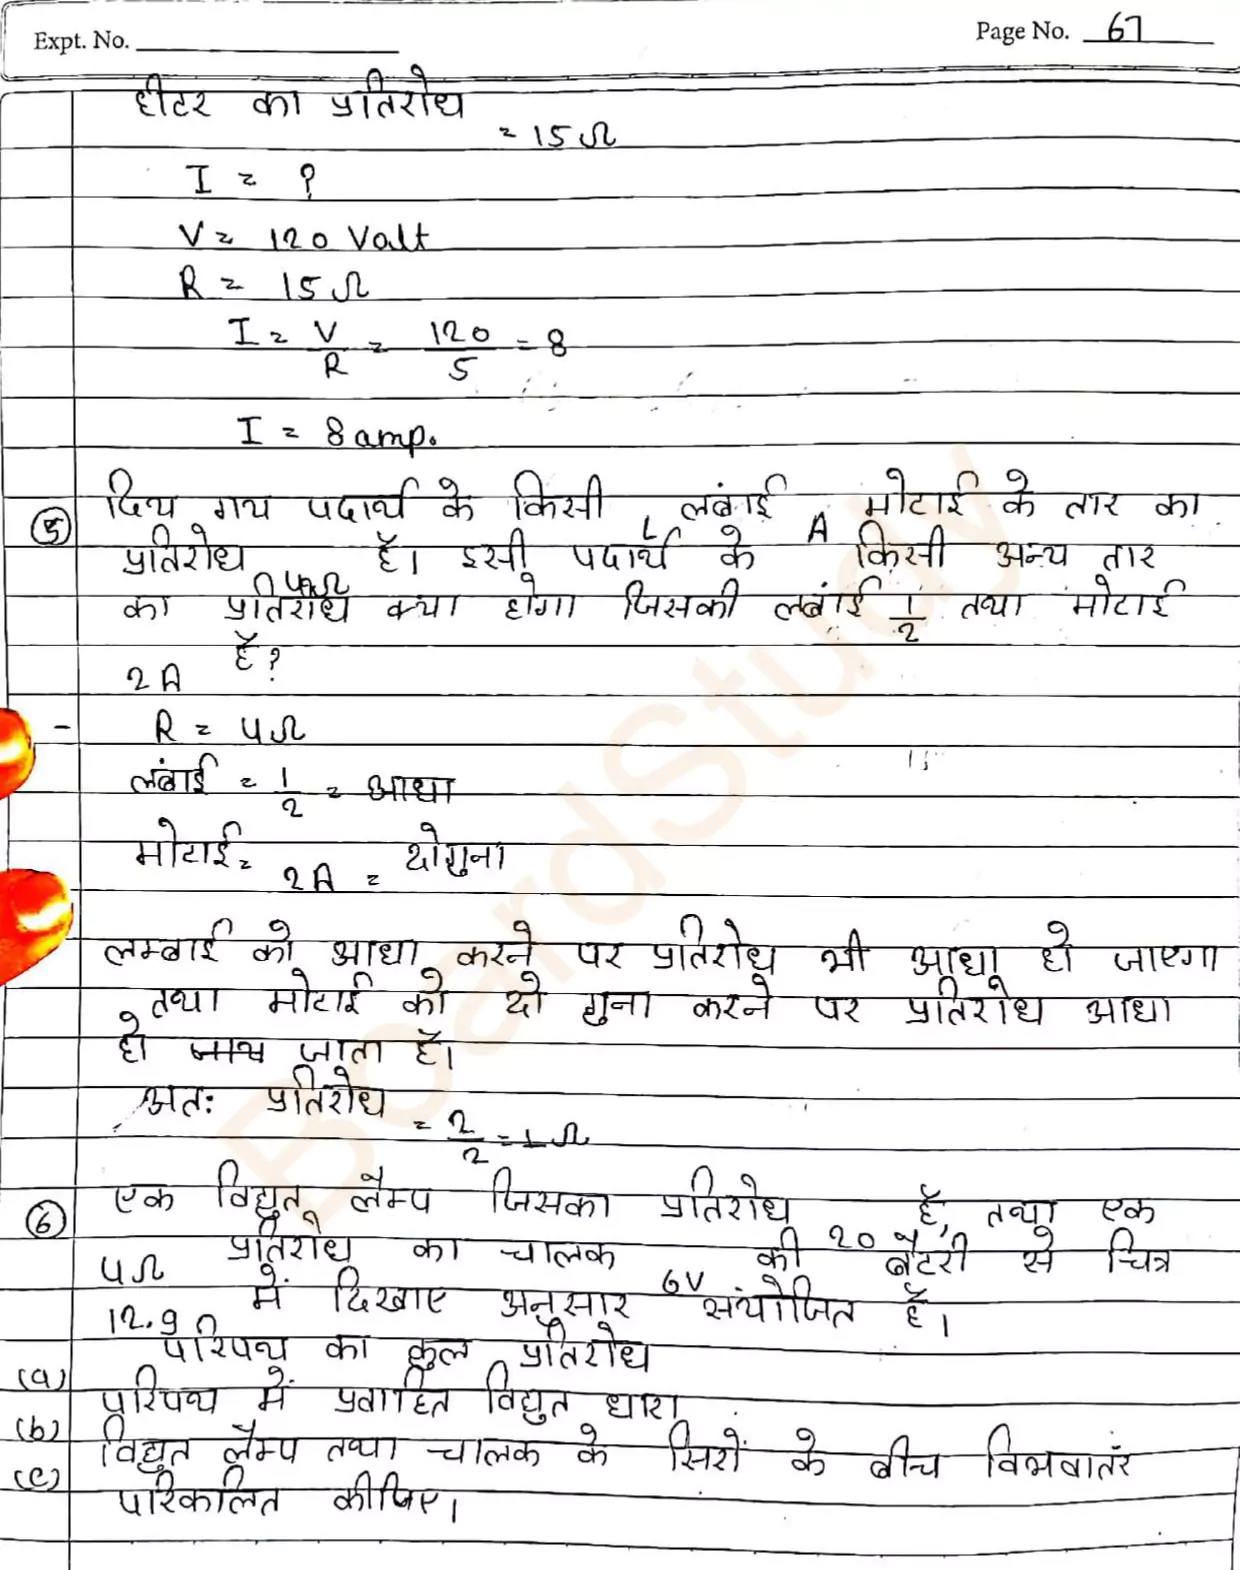 Expt. No.
Page No. 67
हीटर का प्रतिरोध
= 15 Ω
I = ?
V = 120 Valt
R = 15 Ω
I = V/R = 120/5 = 8
I = 8 amp.
(5) दिय गय पदार्थ के किसी L लंबाई A मोटाई के तार का
प्रतिरोध 4Ω है। इसी पदार्थ के किसी अन्य तार
का प्रतिरोध क्या होगा जिसकी लबांई 1/2 तथा मोटाई
2A है?
- R = 4Ω
लंबाई = 1/2 = आधा
मोटाई = 2A = दोगुना
लम्बाई को आधा करने पर प्रतिरोध भी आधा हो जाएगा
तथा मोटाई को दो गुना करने पर प्रतिरोध आधा
हो जाता है।
अतः प्रतिरोध = 2/2 = 1 Ω
(6) एक विद्युत लैम्प जिसका प्रतिरोध 20 है, तथा एक
4Ω प्रतिरोध का चालक 6V की बैटरी से चित्र
12.9 में दिखाए अनुसार संयोजित है।
(a) परिपथ का कुल प्रतिरोध
(b) परिपथ में प्रवाहित विद्युत धारा
(c) विद्युत लैम्प तथा चालक के सिरों के बीच विभवातंर
परिकलित कीजिए।
BoardStudy